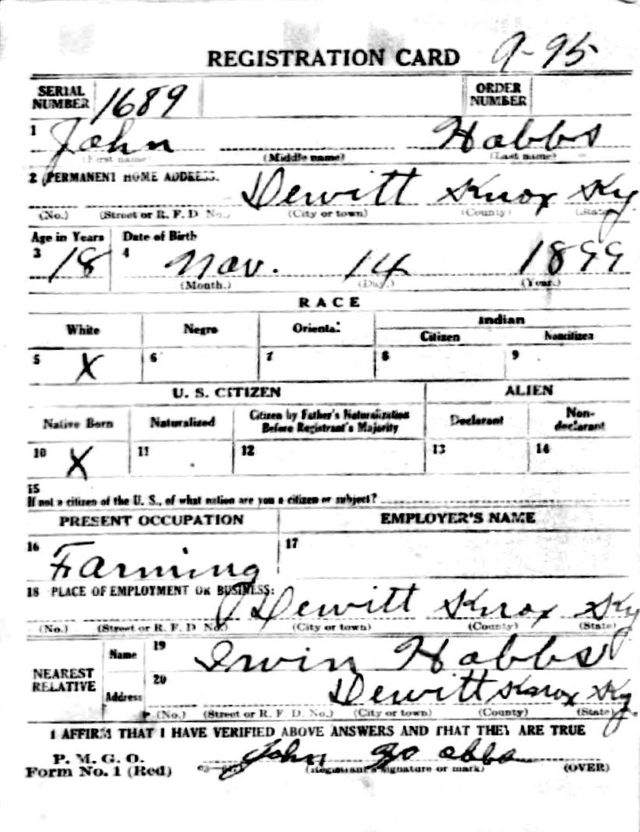 REGISTRATION CARD 9-95
SERIAL NUMBER 1689 ORDER NUMBER
1 John Habbs
(First name) (Middle name) (Last name)
2 PERMANENT HOME ADDRESS: Dewitt Knox Ky
(No.) (Street or R. F. D No.) (City or town) (County) (State)
Age in Years Date of Birth
3 18 4 Nov. 14 1899
(Month.) (Day.) (Year.)
RACE
White Negro Oriental Indian
Citizen Noncitizen
5 X 6 7 8 9
U. S. CITIZEN ALIEN
Native Born Naturalized Citizen by Father's Naturalization Before Registrant's Majority Declarant Non-declarant
10 X 11 12 13 14
15
If not a citizen of the U. S., of what nation are you a citizen or subject?
PRESENT OCCUPATION EMPLOYER'S NAME
16 Farming 17
18 PLACE OF EMPLOYMENT OR BUSINESS:
Dewitt Knox Ky
(No.) (Street or R. F. D No.) (City or town) (County) (State)
NEAREST RELATIVE Name 19 Irvin Habbs
Address 20 Dewitt Knox Ky.
(No.) (Street or R. F. D. No.) (City or town) (County) (State)
I AFFIRM THAT I HAVE VERIFIED ABOVE ANSWERS AND THAT THEY ARE TRUE
P. M. G. O.
Form No. 1 (Red) John (Registrant's signature or mark) (OVER)